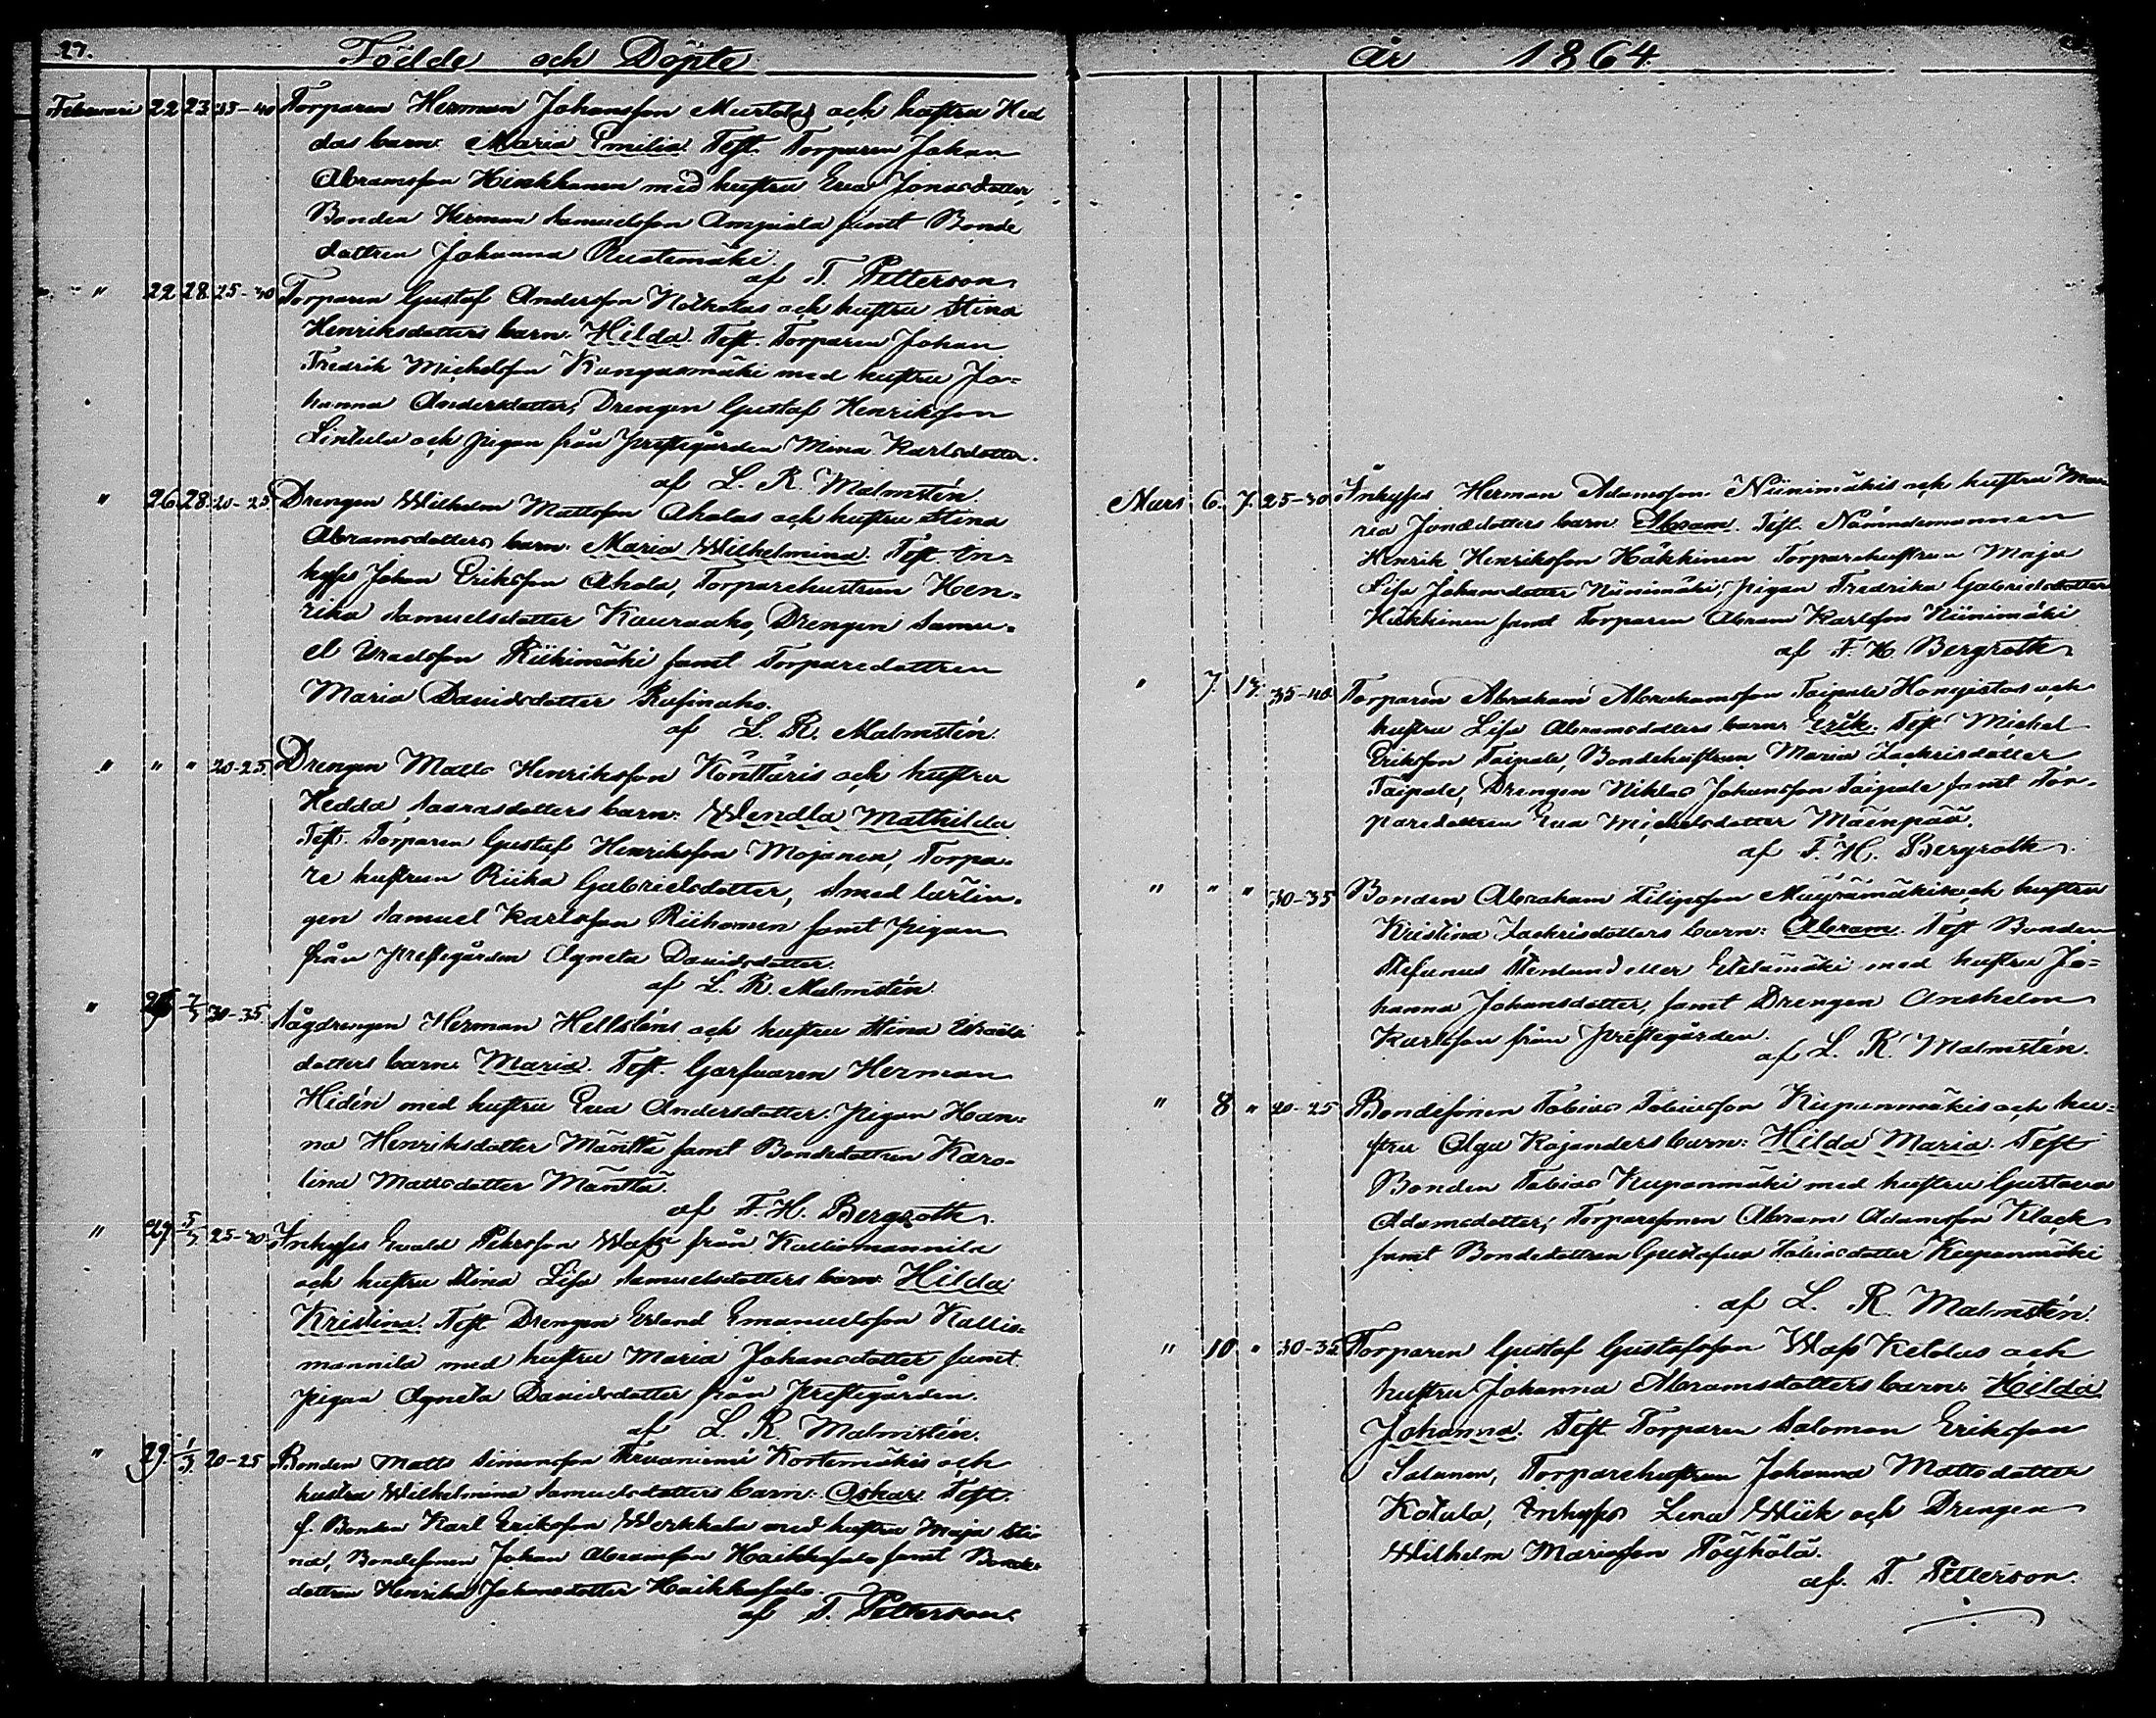 27. Födde och Döpte
Februari 22 23 35-40 Torparen Herman Johansson och hustru Hed
das barn: Maria Emilia. Test. Torparen Johan
Abramsson med hustru Eva Jonasdotter,
Bonden Herman Samuelsson Ampiala samt Bonde
dottren Johanna Rustemäki.
af T. Petterson
" 22 28 25-30 Torparen Gustaf Andersson och hustru Stina
Henriksdotters barn: Hilda. Test. Torparen Johan
Fredrik Michelsson Kangasmäki med hustru Jo=
hanna Andersdotter, Drengen Gustaf Henriksson
Lintula och pigan från Prestegården Mina Karlsdotter.
af L. R. Malmstén.
" 26 28 20-25 Drengen Wilhelm Mattsson Aholas och hustru Stina
Abramsdotters barn: Maria Wilhelmina. Test. In=
hyses Johan Eriksson Ahola, Torparehustrun Hen=
rika Samuelsdotter Kauraaho, Drengen Samu=
el Riihimäki samt Torparedottren
Maria Davidsdotter
af L. R. Malmstén.
" " " 20-25 Drengen Matts Henriksson Könttäris och hustru
Hedda barn: Wendla Mathilda
Test. Torparen Gustaf Henriksson Mojanen, Torpa=
re hustrun Riika Gabrielsdotter, Smed lärlin=
gen Samuel Karlsson Riihonen samt pigan
från Prestegården Agneta Davidsdotter.
af L. R. Malmstén.
" 7/3 30-35 Sågdrengen Herman Hellsténs och hustru Stina Israels
dotters barn: Maria. Test. Garfvaren Herman
Hidén med hustru Eva Andersdotter, Pigan Han=
na Henriksdotter Mänttä samt Bondedottren Karo=
lina Mattsdotter Mänttä.
af F. H. Bergroth.
" 29 5/3 25-30 Inhyses Evald Pehrsson från Kalliomannila
och hustru Stina Lisa Samuelsdotters barn: Hilda
Kristina. Test. Drengen Erland Emanuelsson Kallio=
mannila med hustru Maria Johansdotter samt
pigan Agneta Davidsdotter från Prestegården.
af L. R. Malmstén.
" 29 1/3 20-25 Bonden Matts Simonsson Kortemäkis och
hustru Wilhelmina Samuelsdotters barn: Oskar. Test.
f. Bonden Karl Eriksson Werkkala med hustru Maja Sti
na, Bondesonen Johan Abramsson Haikkasalo samt Bonde
dottren Henrika Johansdotter Haikkasalo.
af T. Petterson.
år 1864.
Mars 6. 7. 25-30 Inhyses Herman Adamsson Niinimäkis och hustru Ma
ria Jonædotters barn: Abram. Test. Nämndemannen
Henrik Henriksson Häkkinen Torparehustrun Maja
Lisa Johansdotter Niinimäki, pigan Fredrika Gabrielsdotter
Häkkinen samt Torparen Abram Karlsson Niinimäki
af F. H. Bergroth.
" 7. 13. 35-40 Torparen Abraham Abrahamsson Taipale Hongistos och
hustru Lisa Abramsdotters barn: Erik. Test. Michel
Eriksson Taipale, Bondehustrun Maria Zachrisdotter
Taipale, Drengen Niklas Johansson Taipale samt Tor=
paredottren Eva Michelsdotter Mäenpää.
af F. H. Bergroth.
" " " 30-35 Bonden Abraham Filipsson Mäyrämäkis och hustru
Kristina Zachrisdotters barn: Abram. Test. Bonden
Stefanus Stenlund eller Etelämäki med hustru Jo=
hanna Johansdotter, samt Drengen Anshelm
Karlsson från Prestegården.
af L. R. Malmstén.
" 8 " 20-25 Bondesonen Tobias Tobiasson Kupanmäkis och hu=
stru Olga Kajanders barn: Hilda Maria. Test.
Bonden Tobias Kupanmäki med hustru Gustava
Adamsdotter, Torparesonen Abram Adamsson Klack
samt Bondedottren Gustafva Tobiasdotter Kupanmäki
af L. R. Malmstén.
" 10 " 30-35 Torparen Gustaf Gustafsson Ketolas och
hustru Johanna Abramsdotters barn: Hilda
Johanna. Test. Torparen Salomon Eriksson
Salonen, Torparehustrun Johanna Mattsdotter
Kotula, Inhyses Lena Wiik och Drengen
Wilhelm Mariasson Pöyhölä.
af. T. Petterson.